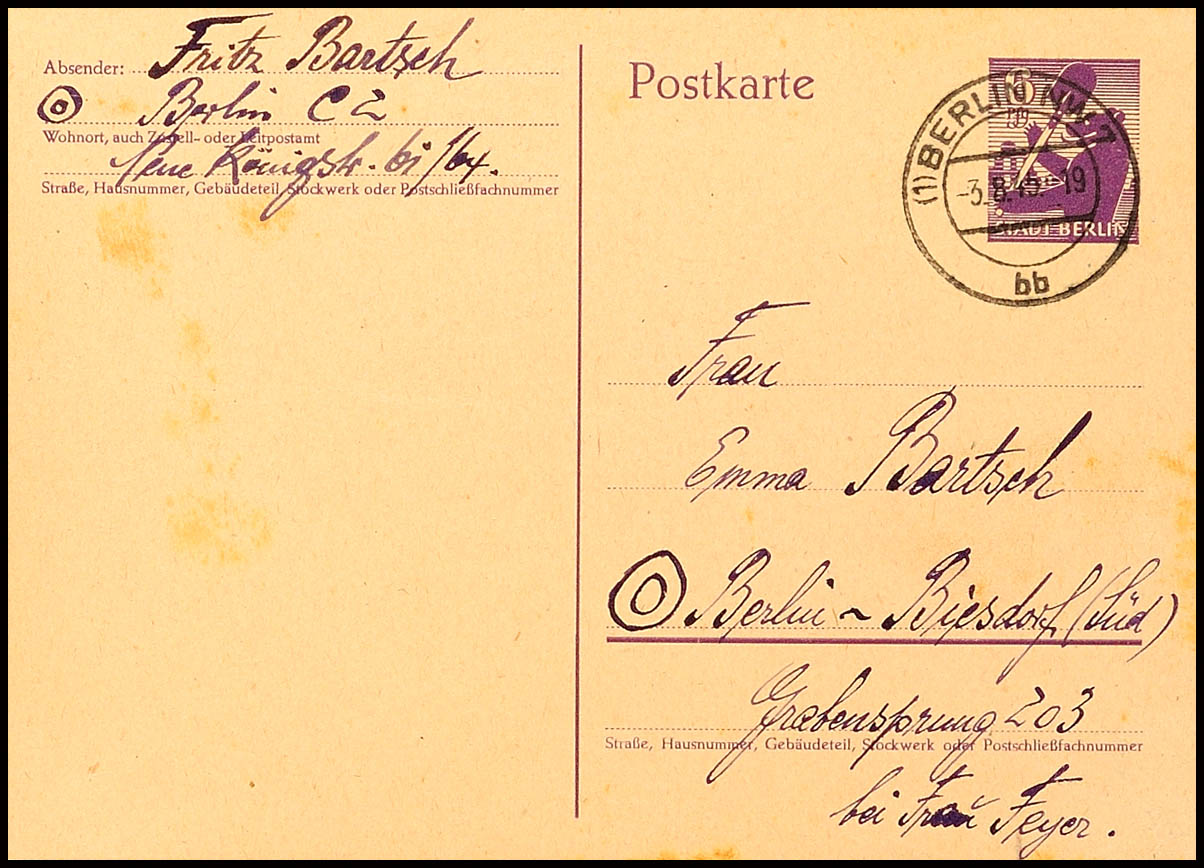 Absender: Fritz Bartsch
Berlin C 2
Wohnort, auch Zustell- oder Leitpostamt
Neue Königstr. 61/64.
Straße, Hausnummer, Gebäudeteil, Stockwerk oder Postschließfachnummer
Postkarte
6
STADT BERLIN
(1) BERLIN NW 7
-3.8.45.-19
bb
Frau
Emma Bartsch
Berlin ~ Biesdorf (Süd)
Grabensprung 203
Straße, Hausnummer, Gebäudeteil, Stockwerk oder Postschließfachnummer
bei Frau Feyer.